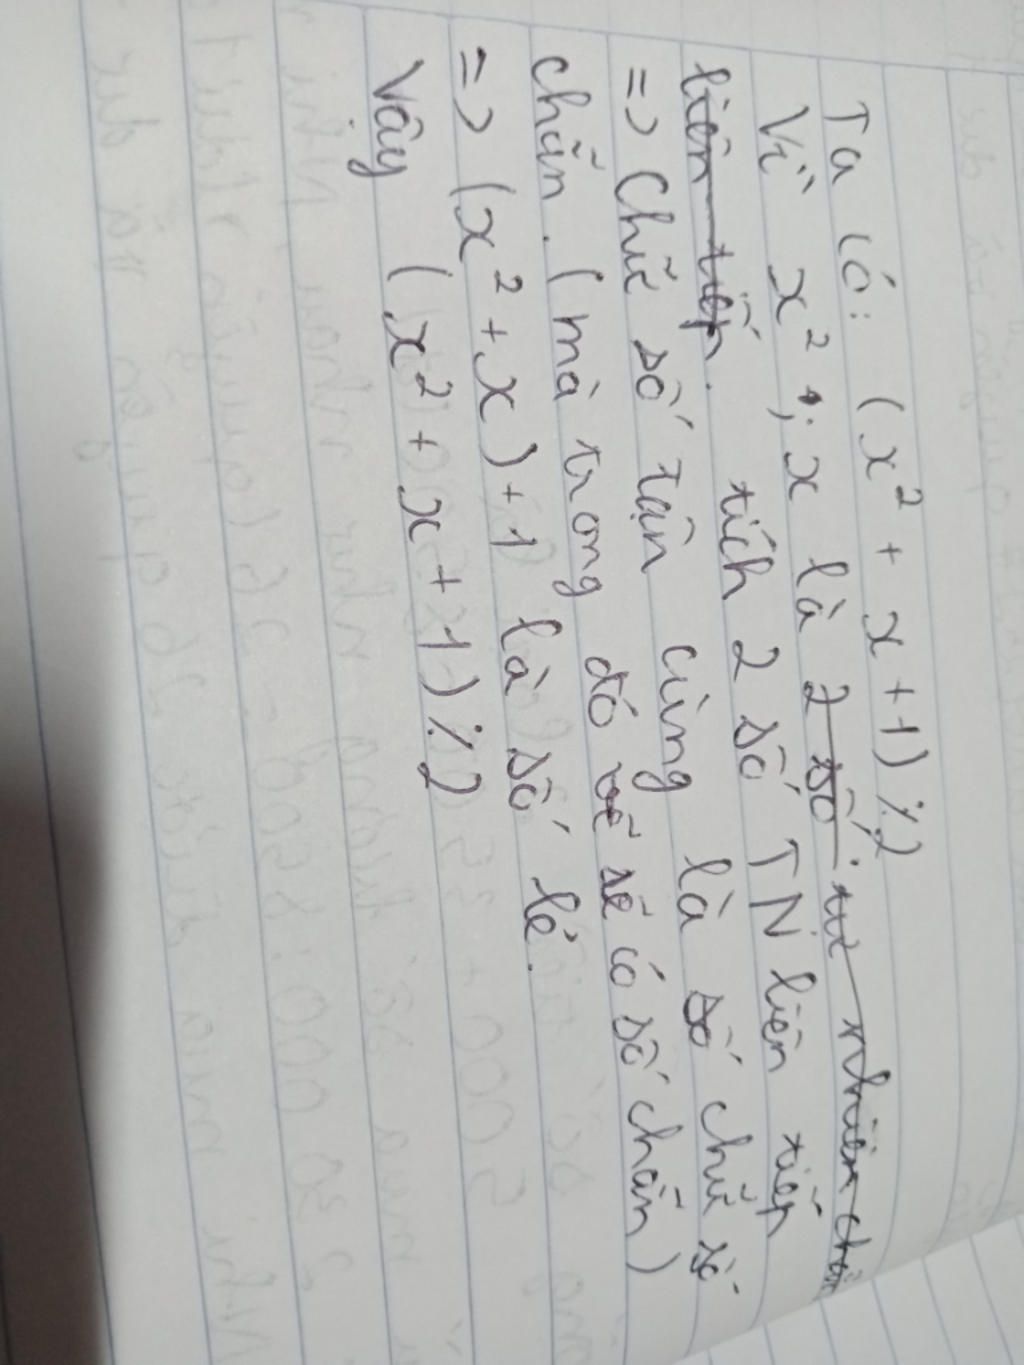 Ta có: (x² + x + 1) ⋮̸ 2
Vì x² ; x là 2 số tự nhiên chẵn
liên tiếp. tích 2 số TN liên tiếp
=> Chữ số tận cùng là số chữ số
chẵn. (mà trong đó sẽ có số chẵn)
=> (x² + x) + 1 là số lẻ.
Vậy (x² + x + 1) ⋮̸ 2